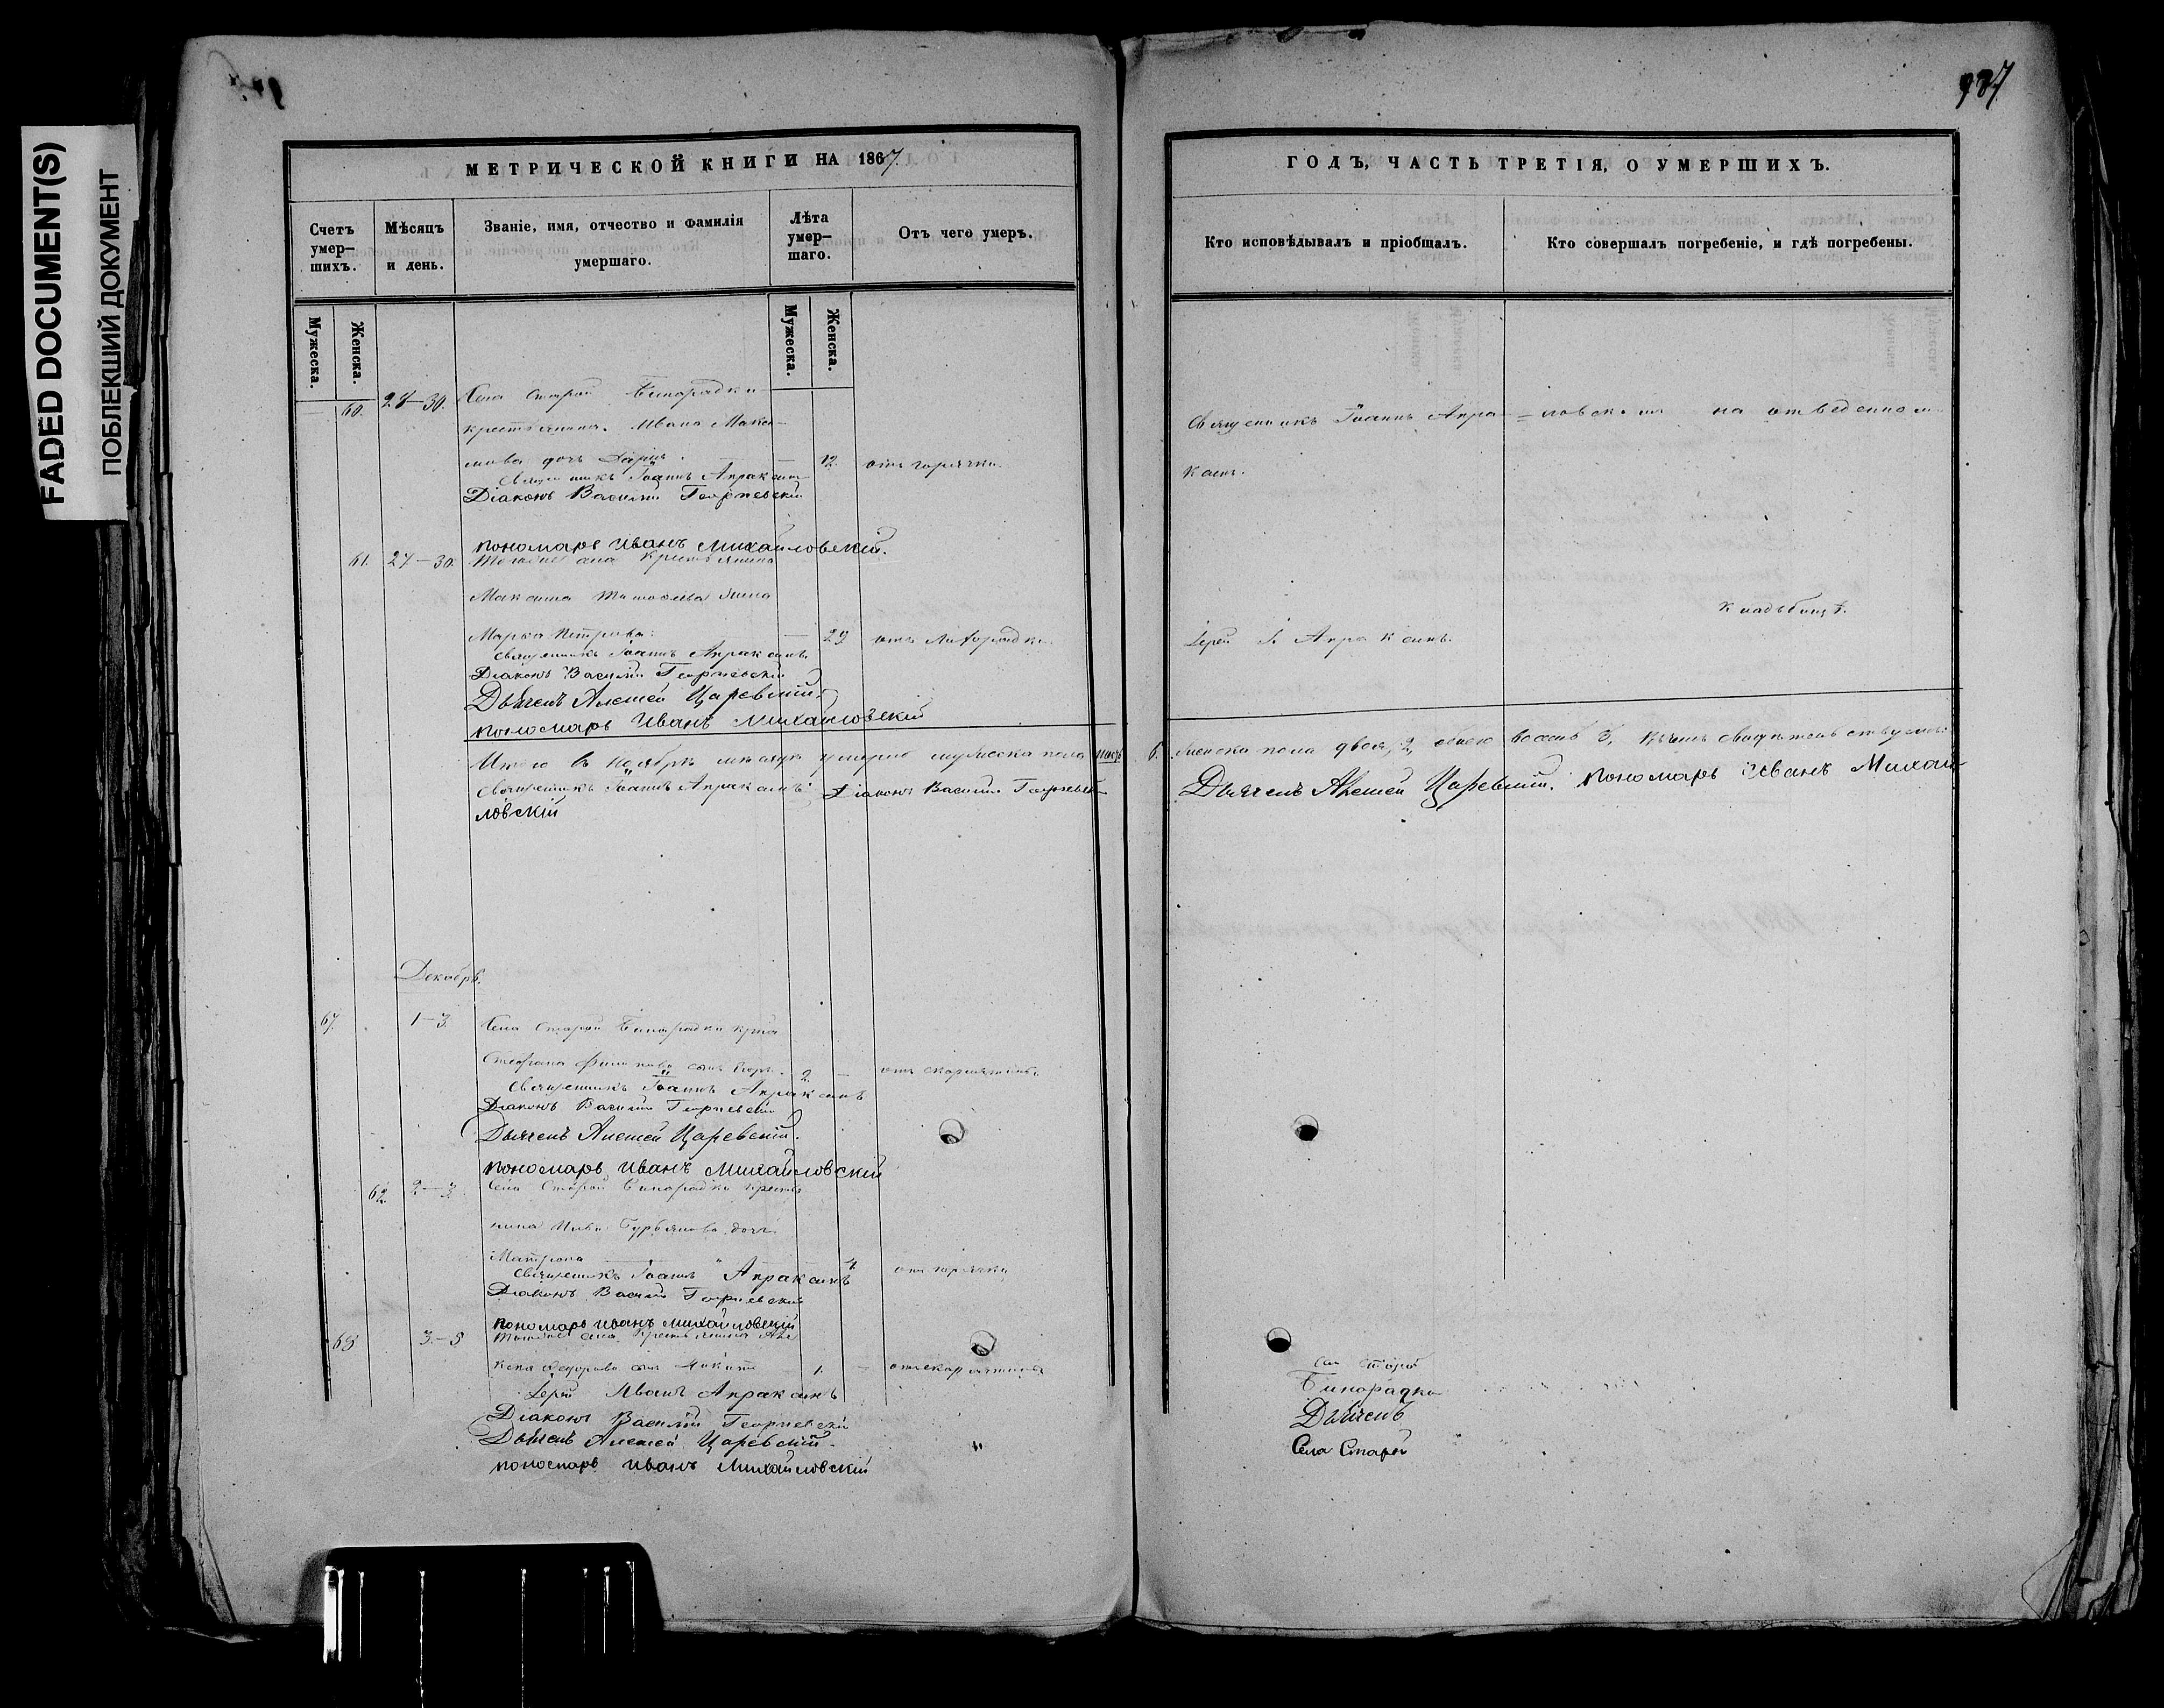 FADED DOCUMENT(S)
ПОБЛЕКШИЙ ДОКУМЕНТ
987
МЕТРИЧЕСКОЙ КНИГИ НА 1867.
Счетъ умер-шихъ.
Мѣсяцъ и день.
Званіе, имя, отчество и фамилія умершаго.
Лѣта умер-шаго.
Отъ чего умеръ.
Мужеска.
Женска.
Мужеска.
Женска.
60. 27-30. Села Старой Бинарадки
крестьянина Ивана Макси-
мова дочь Дарья. — 12. отъ горячки.
Священникъ Іоаннъ Апраксинъ
Діаконъ Василій Георгіевскій
пономарь Иванъ Михайловскій.
61. 27-30. Тогоже села крестьянина
Максима жена
Марья Петрова. — 29 отъ лихорадки.
Священникъ Іоаннъ Апраксинъ
Діаконъ Василій Георгіевскій
Дьячекъ Алексей Царевскій.
пономарь Иванъ Михайловскій
Итого въ Ноябрѣ мѣсяцѣ умерло мужеска пола шесть
Священникъ Іоаннъ Апраксинъ Діаконъ Василій Георгіевскій
ловскій
Декабрь.
67. 1-3. Села Старой Бинарадки крест.
Стефана Филипова сынъ Егоръ. 2. — отъ скарлатины.
Священникъ Іоаннъ Апраксинъ
Діаконъ Василій Георгіевскій
Дьячекъ Алексей Царевскій.
пономарь Иванъ Михайловскій
62. 2-3. Села Старой Бинарадки крестья
нина Гурьянова дочь
Матрона 4. отъ горячки
Священникъ Іоаннъ Апраксинъ
Діаконъ Василій Георгіевскій
пономарь Иванъ Михайловскій
68 3-5 Тогоже села крестьянина Але
ксея Федорова сынъ Никита 1. — отъ скарлатины
Іерей Иванъ Апраксинъ
Діаконъ Василій Георгіевскій
Дьячекъ Алексей Царевскій.
пономарь Иванъ Михайловскій
ГОДЪ, ЧАСТЬ ТРЕТІЯ, О УМЕРШИХЪ.
Кто исповѣдывалъ и пріобщалъ.
Кто совершалъ погребеніе, и гдѣ погребены.
Священникъ Іоаннъ Апра = на отведенномъ
ксинъ.
кладбищѣ.
Іерей І. Апраксинъ.
6. женска пола двое, 2, обоего восемь 8, въ чемъ свидѣтельствуемъ:
Дьячекъ Алексей Царевскій. пономарь Иванъ Михай
села Старой
Бинарадки
Дьячекъ
Села Старой